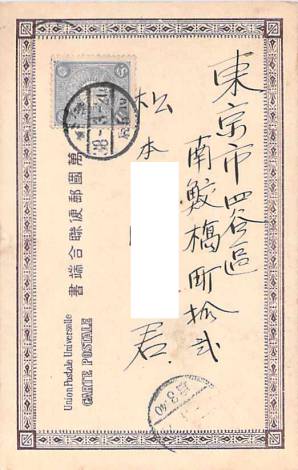 東京市四谷區
南鮫橋町拾弐
松本
君
萬國郵便聯合端書
Union Postale Universelle
CARTE POSTALE